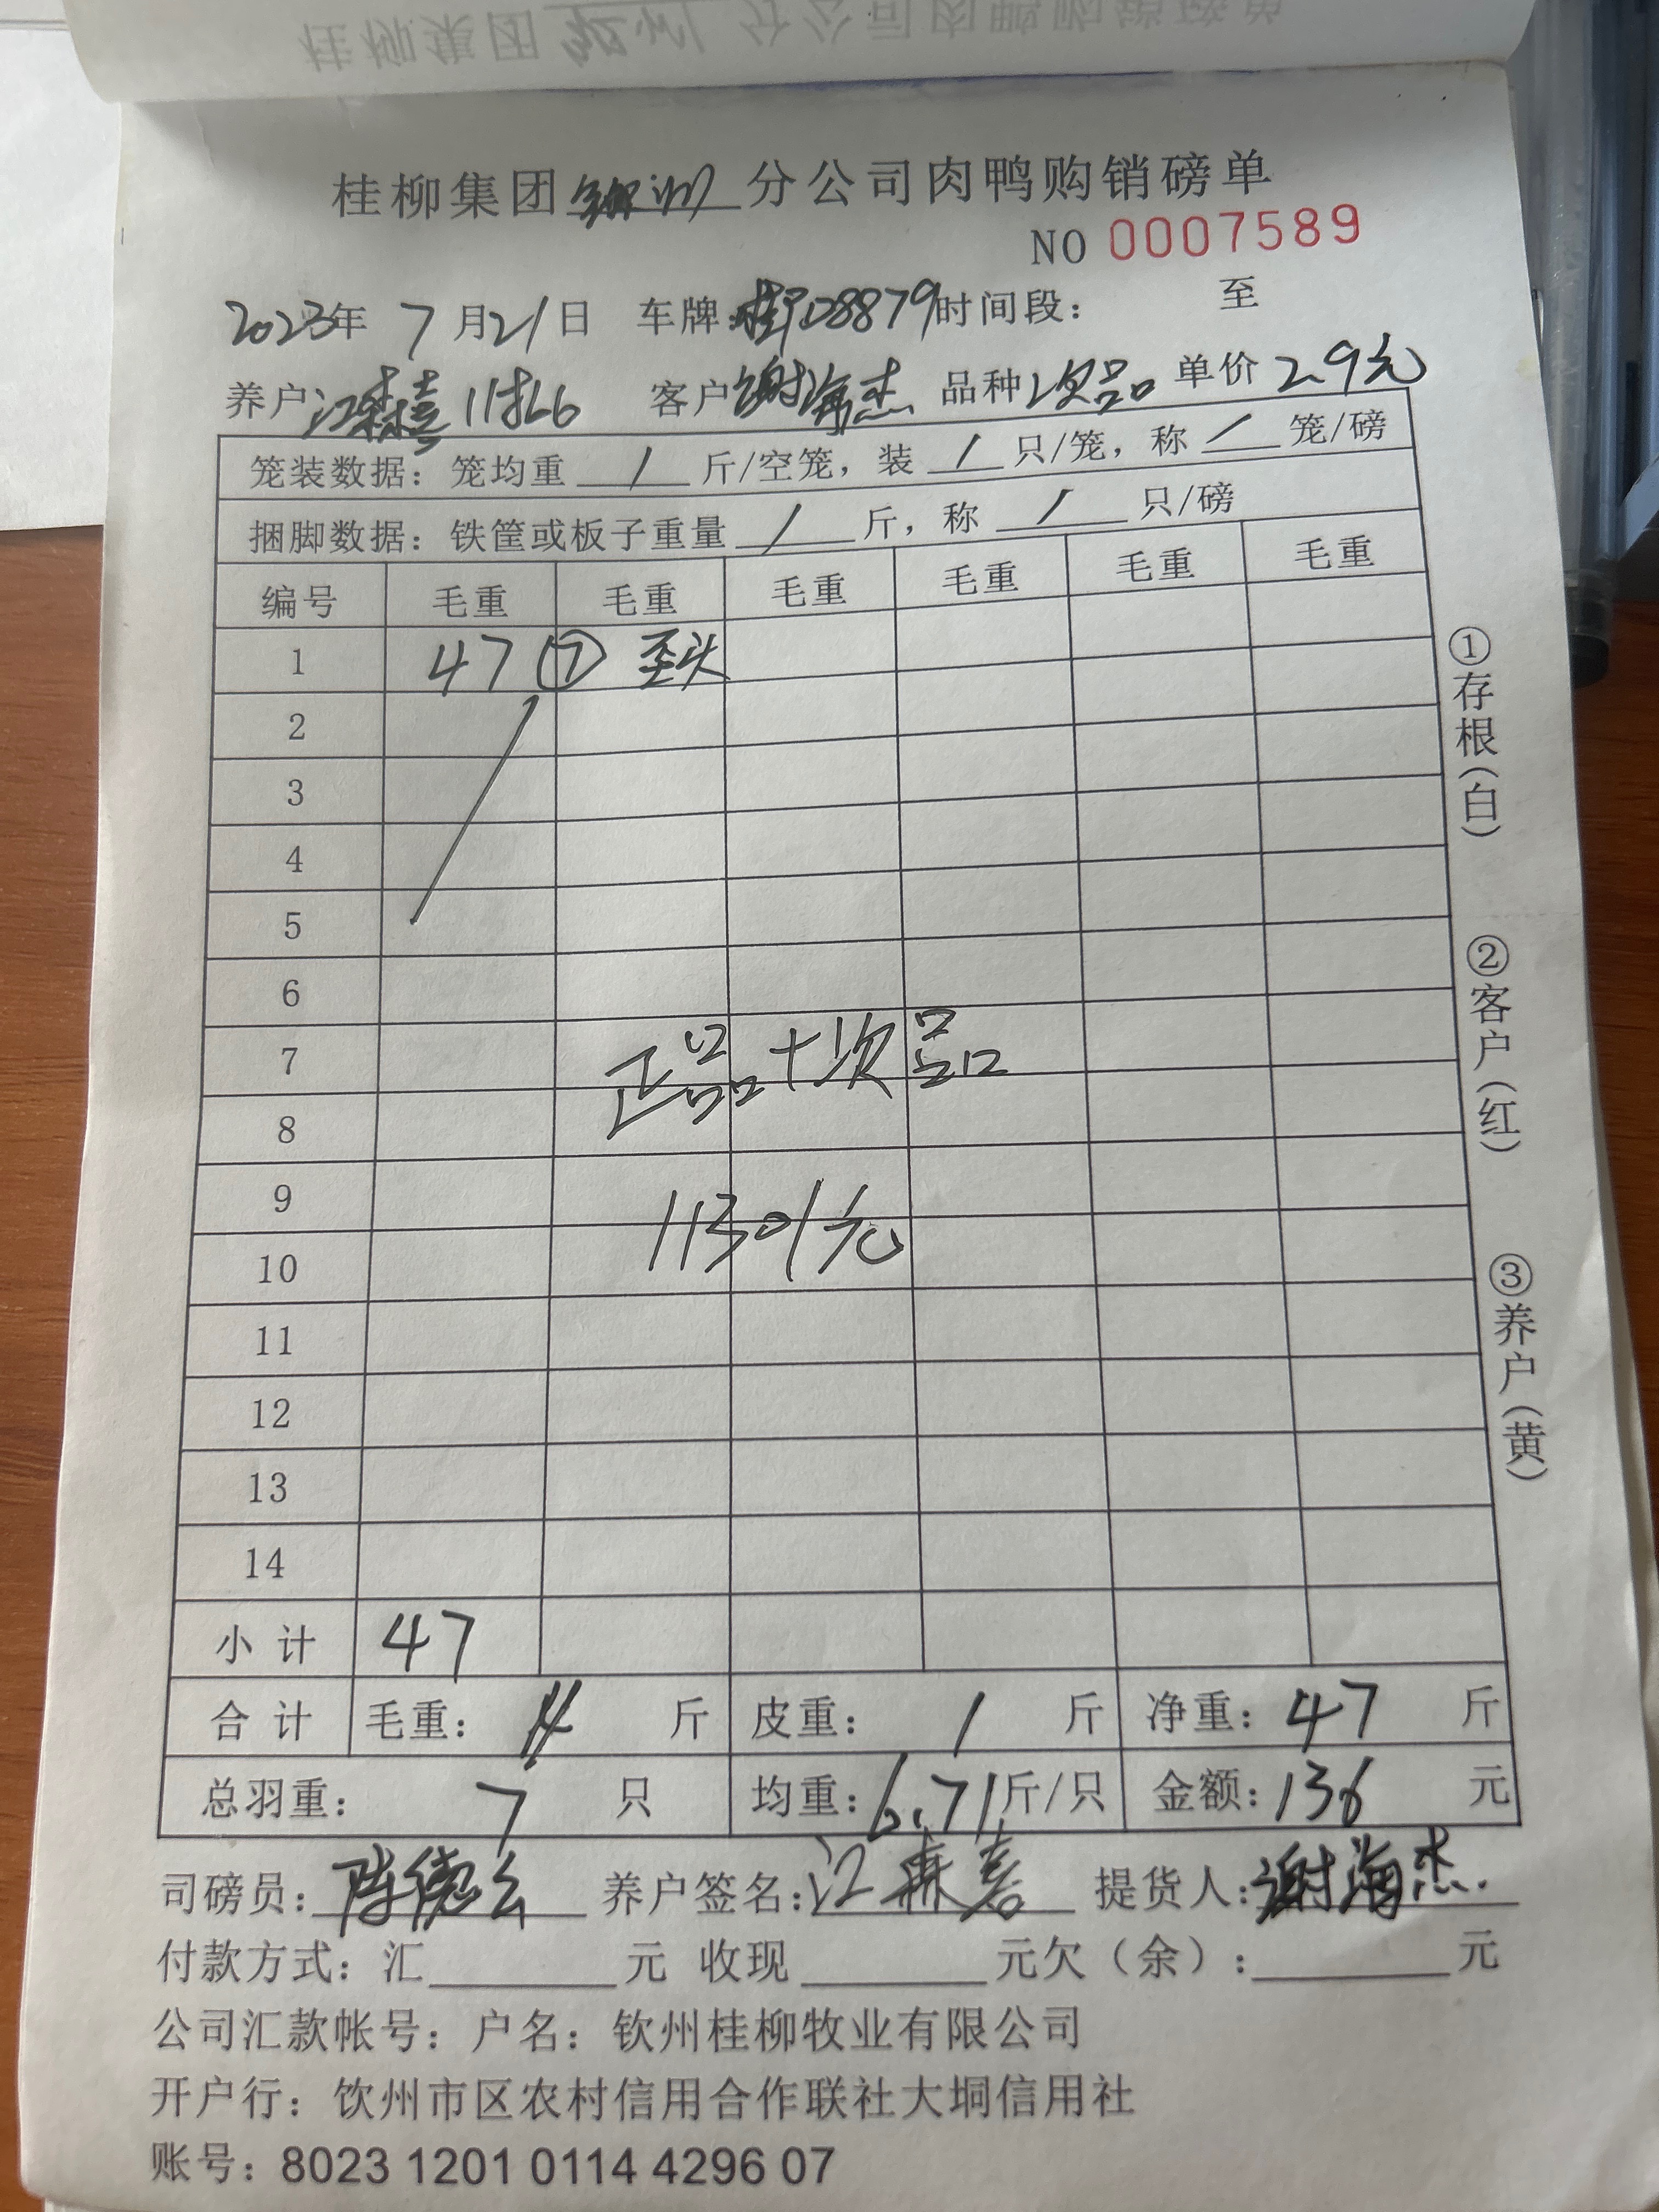 桂柳集团钦州分公司肉鸭购销磅单
NO 0007589
2023年 7月21日 车牌:桂D8879 时间段: 至
养户:江森喜 11批6 客户谢海杰 品种次品 单价2.9元
笼装数据: 笼均重 / 斤/空笼, 装 / 只/笼, 称 / 笼/磅
捆脚数据: 铁筐或板子重量 / 斤, 称 / 只/磅
编号 毛重 毛重 毛重 毛重 毛重 毛重
1 47 ⑦ 歪头
2
3
4
5
6
7 正品+次品
8
9 11301元
10
11
12
13
14
小计 47
合计 毛重: 斤 皮重: / 斤 净重: 47 斤
总羽重: 7 只 均重: 6.71斤/只 金额: 136 元
司磅员: 陈德 养户签名: 江森喜 提货人: 谢海杰
付款方式: 汇 元 收现 元欠(余): 元
公司汇款帐号: 户名: 钦州桂柳牧业有限公司
开户行: 钦州市区农村信用合作联社大垌信用社
账号: 8023 1201 0114 4296 07
①存根(白)
②客户(红)
③养户(黄)